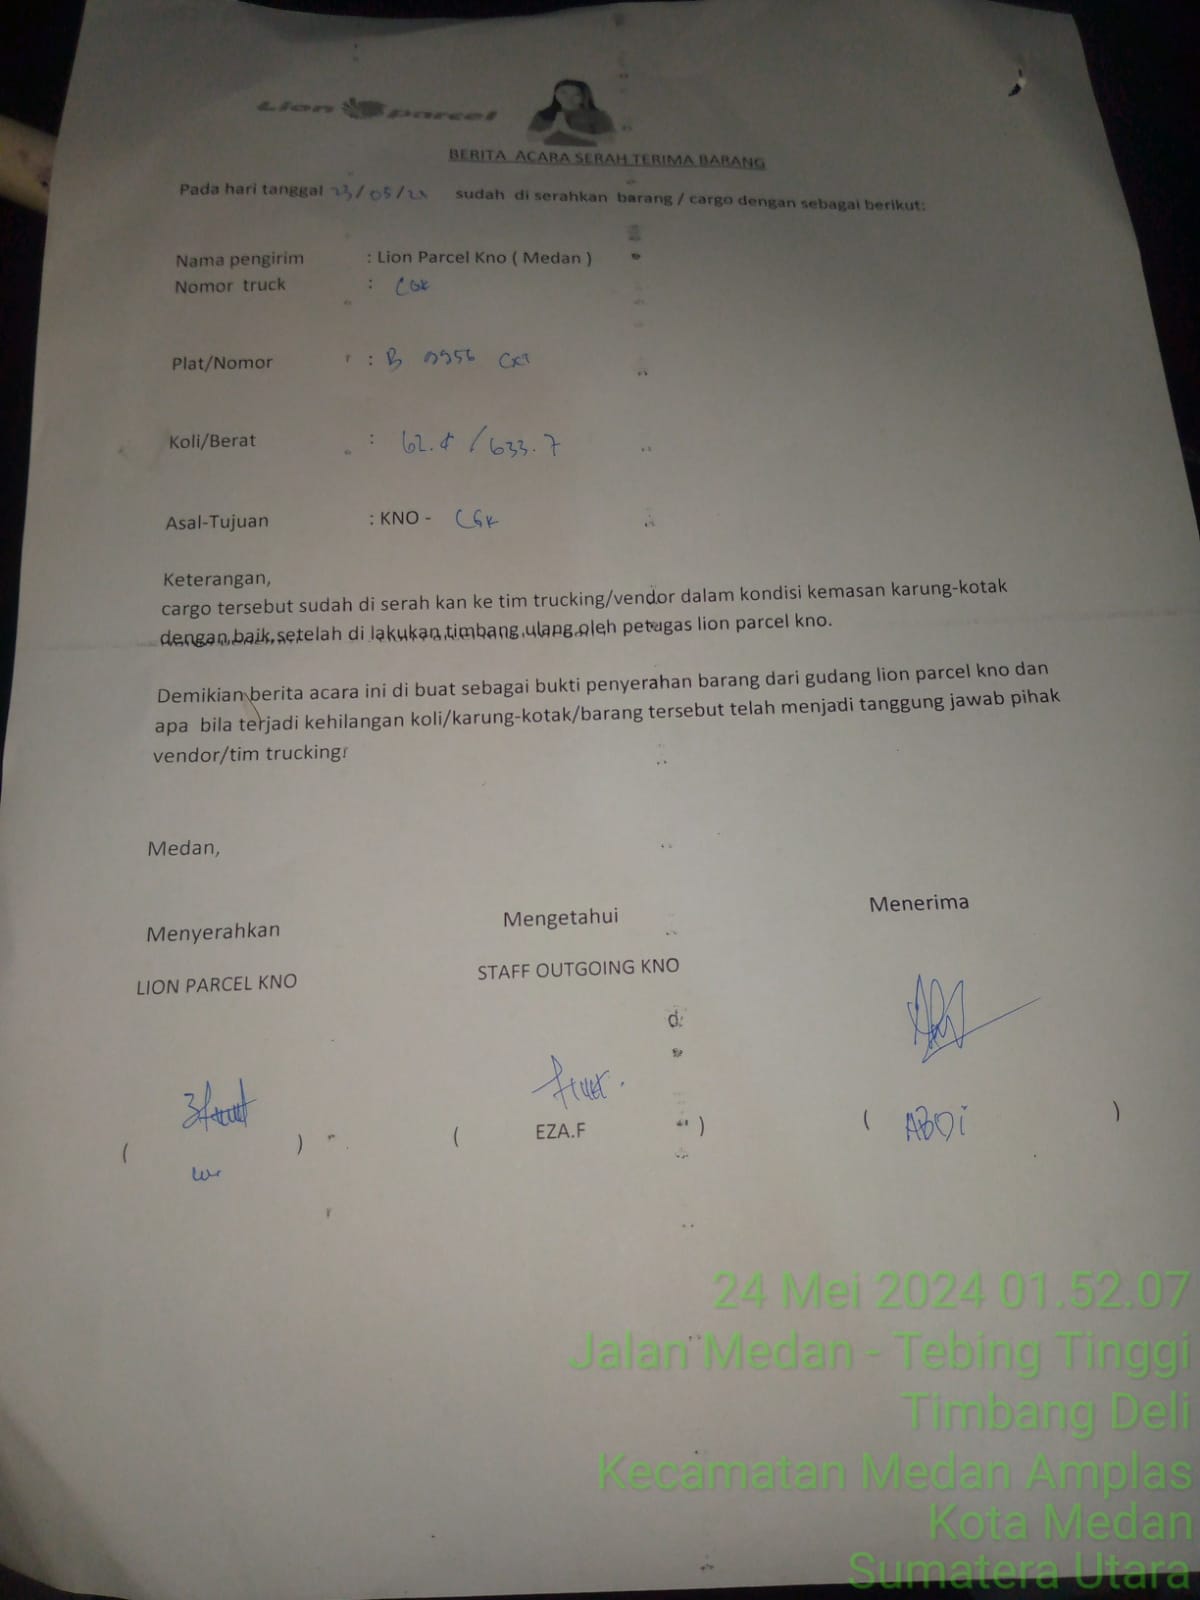 Lion parcel
BERITA ACARA SERAH TERIMA BARANG
Pada hari tanggal 23/05/24 sudah di serahkan barang / cargo dengan sebagai berikut:
Nama pengirim : Lion Parcel Kno ( Medan )
Nomor truck : CGK
Plat/Nomor : B 9956 CXT
Koli/Berat : / 633.7
Asal-Tujuan : KNO - CGK
Keterangan,
cargo tersebut sudah di serah kan ke tim trucking/vendor dalam kondisi kemasan karung-kotak
dengan baik,setelah di lakukan timbang ulang oleh petugas lion parcel kno.
Demikian berita acara ini di buat sebagai bukti penyerahan barang dari gudang lion parcel kno dan
apa bila terjadi kehilangan koli/karung-kotak/barang tersebut telah menjadi tanggung jawab pihak
vendor/tim trucking
Medan,
Menyerahkan Mengetahui Menerima
LION PARCEL KNO STAFF OUTGOING KNO
( ) ( EZA.F ) ( ABDI )
24 Mei 2024 01.52.07
Jalan Medan - Tebing Tinggi
Timbang Deli
Kecamatan Medan Amplas
Kota Medan
Sumatera Utara